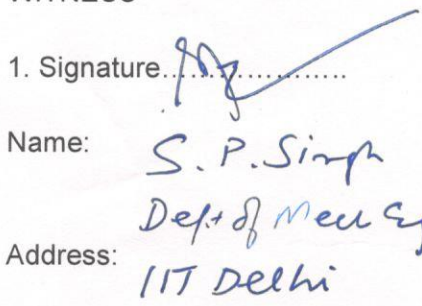 WITNESS
1. Signature.....................
Name: S. P. Singh
Dept of Mech Eg
Address: IIT Delhi